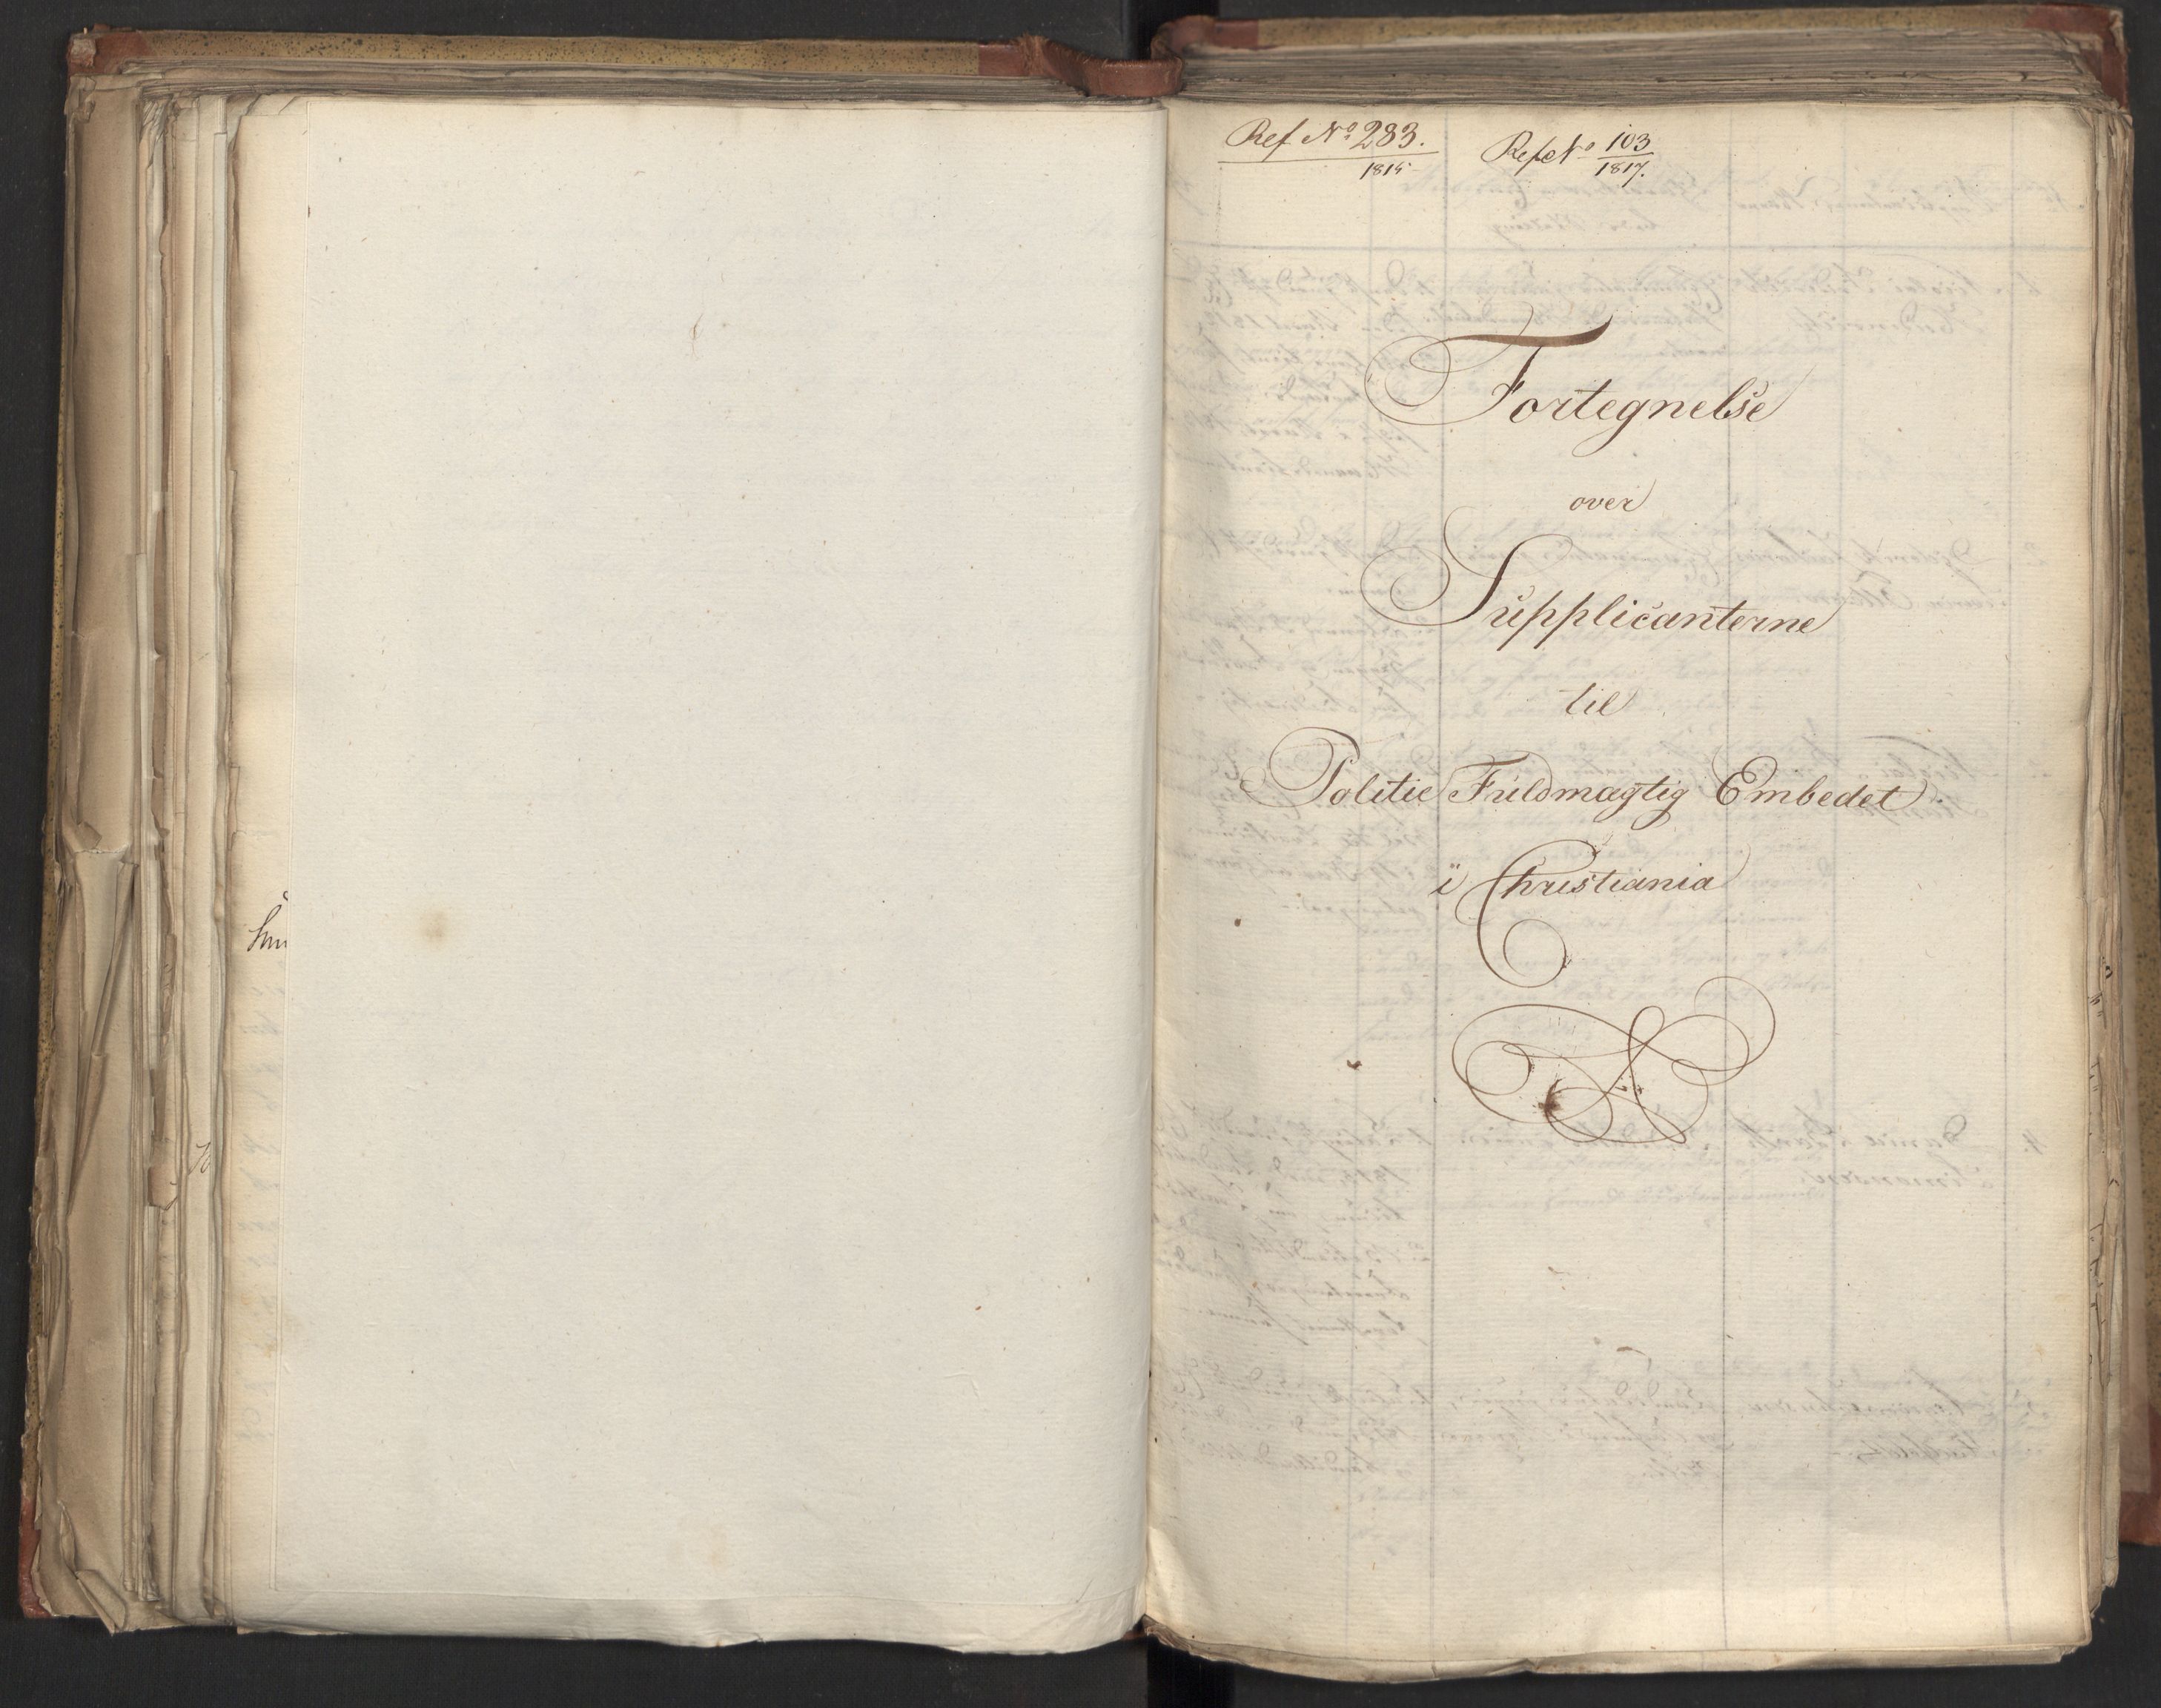 Ref No 283.
1815
Ref No 103
1817.
Fortegnelse
over
Supplicanterne
til
Politie Fuldmægtig Embedet
i Christiania